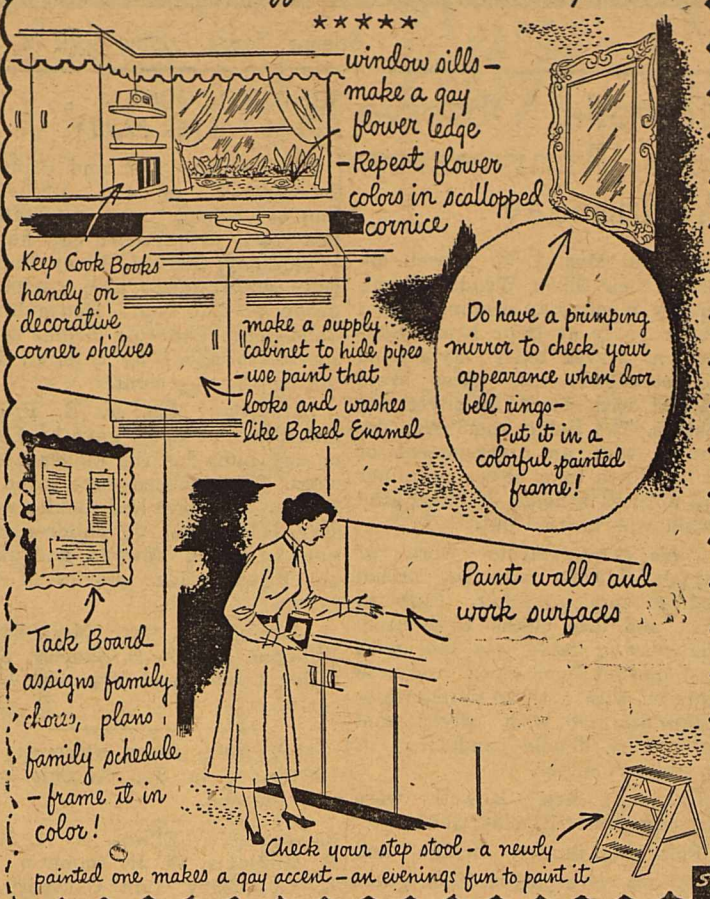 window sills—
make a gay
flower ledge
-Repeat flower
colors in scallopped
cornice
Keep Cook Books
handy on
decorative
corner shelves
make a supply
cabinet to hide pipes
-use paint that
looks and washes
like Baked Enamel
Do have a primping
mirror to check your
appearance when door
bell rings-
Put it in a
colorful painted
frame!
Paint walls and
work surfaces
Tack Board
assigns family
chores, plans
family schedule
-frame it in
color!
Check your step stool - a newly
painted one makes a gay accent - an evenings fun to paint it